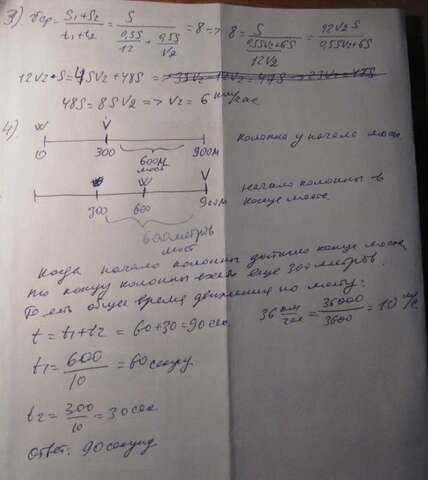 3) Vср = (S1+S2)/(t1+t2) = S/(0,5S/12 + 0,5S/V2) = 8 => 8 = S/((0,5SV2+6S)/12V2) = 12V2S/(0,5SV2+6S)
12V2·S = 4SV2+48S =>
48S = 8SV2 => V2 = 6 км/час
4)
0 300 900м
600м
мост
колонна у начала моста
300 600 900м
начало колонны в
конце моста
600 метров
мост
Когда начало колонны достигло конца моста,
то концу колонны ехать еще 300 метров.
То есть общее время движения по мосту:
t = t1+t2 = 60+30 = 90 сек.
36 км/час = 36000/3600 = 10 м/с
t1 = 600/10 = 60 секунд
t2 = 300/10 = 30 сек
Ответ: 90 секунд